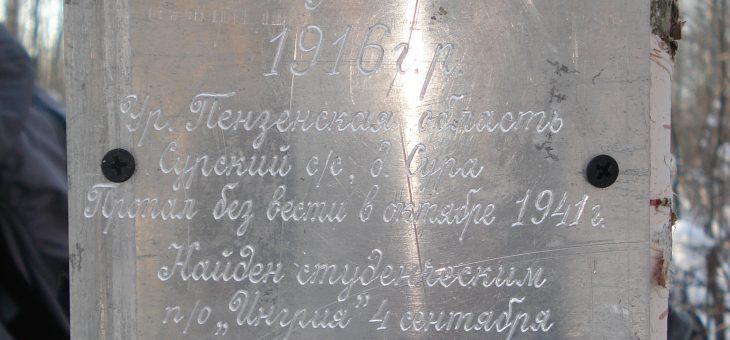 1916 г.р.
Ур. Пензенская область
Сурский с/с, д. Сура
Пропал без вести в октябре 1941 г.
Найден студенческим
п/о „Ингрия” 4 сентября